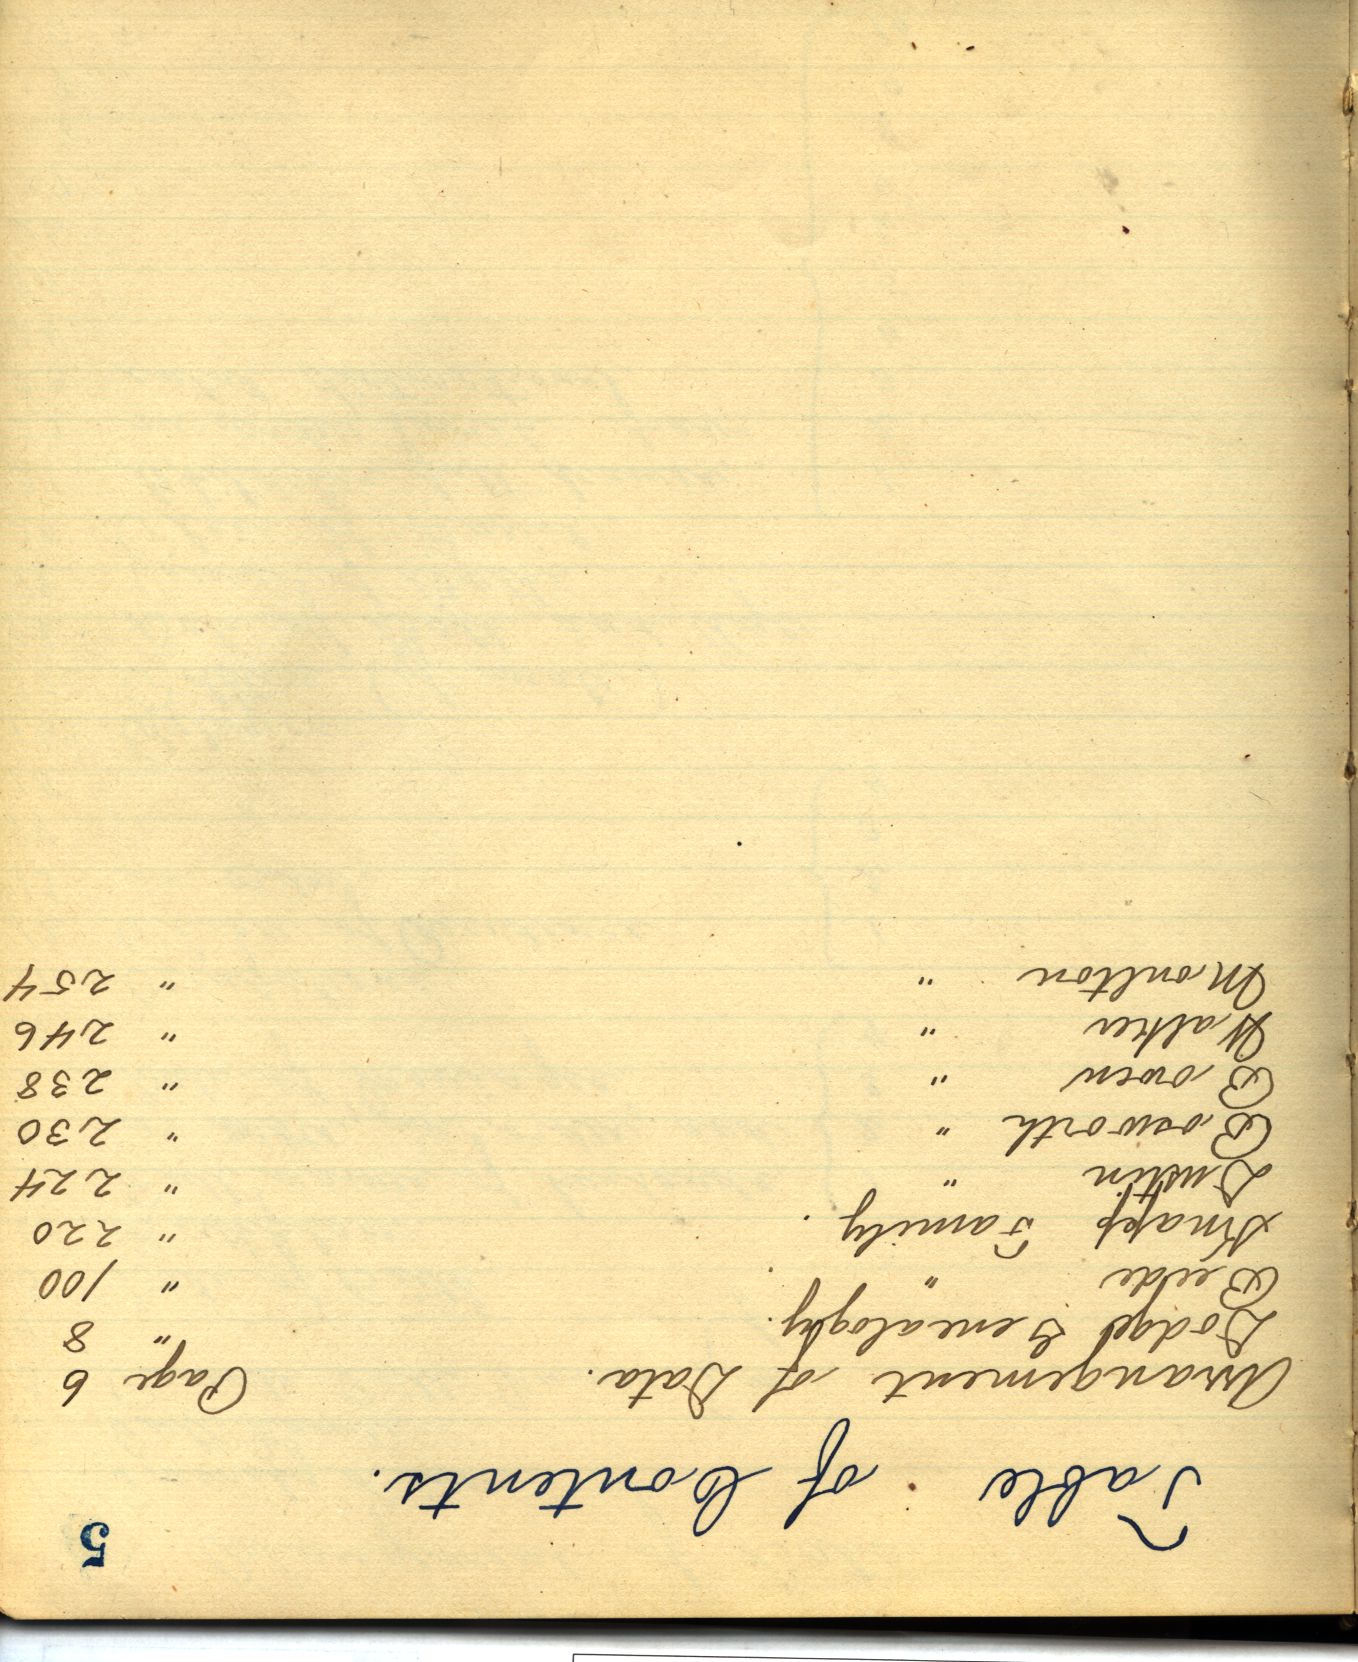 5
Table of Contents.
Arrangement of Data. Page 6
Dodge Genealogy. " 8
Beede " . " 100
Knapp Family. " 220
Dustin " " 224
Bosworth " " 230
Bowen " " 238
Walker " " 246
Moulton " " 254